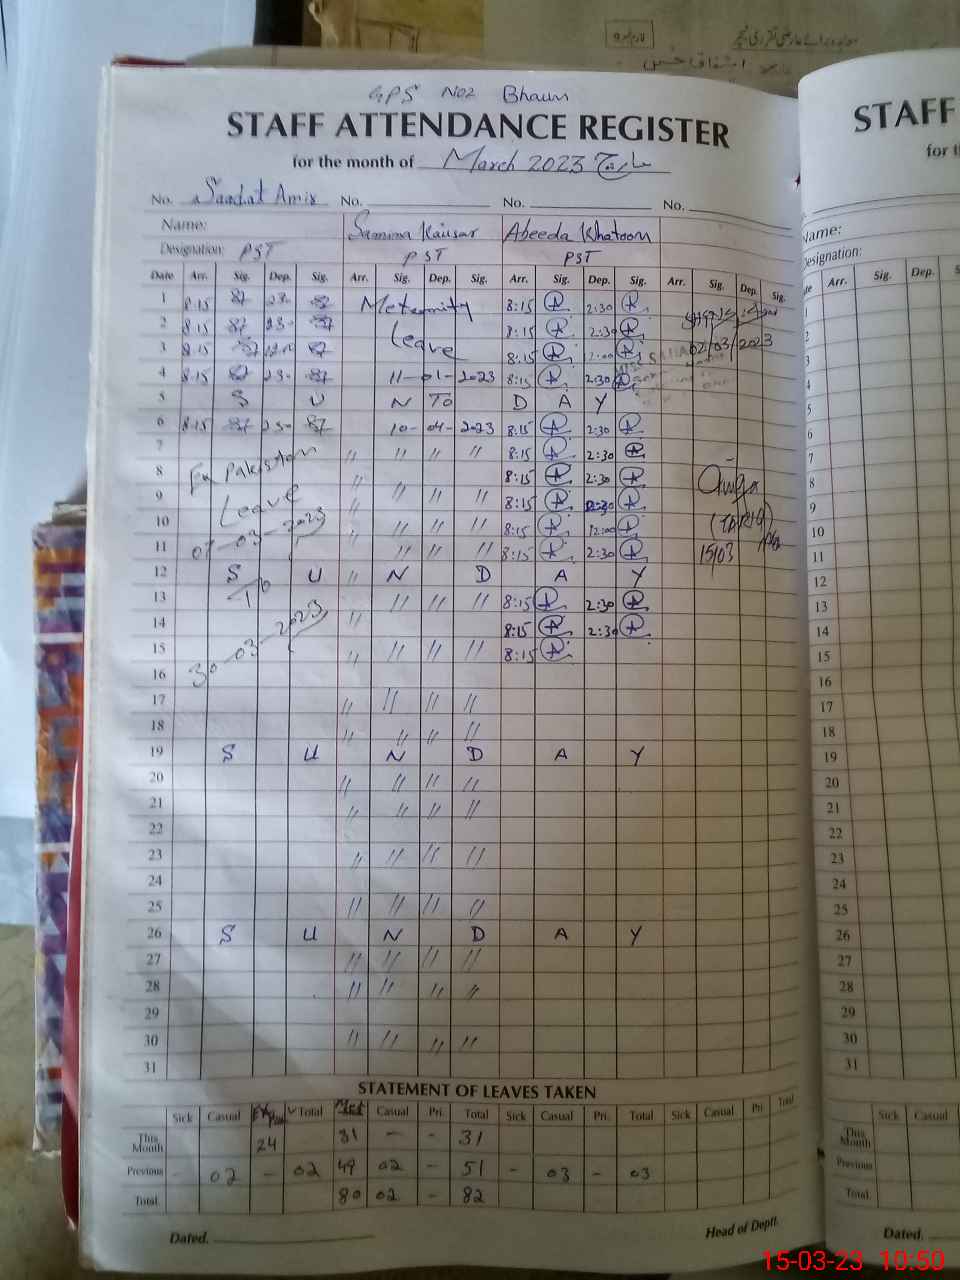 GPS No2 Bhaun
STAFF ATTENDANCE REGISTER
for the month of March 2023 مارچ
No. Saadat Amir No. No. No.
Name: Samina Kausar Abeeda Khatoon
Designation: PST PST PST
Date Arr. Sig. Dep. Sig. Arr. Sig. Dep. Sig. Arr. Sig. Dep. Sig. Arr. Sig. Dep. Sig.
1 8.15 Meternity 8:15 2:30
2 8.15 Leave 8:15 2:30
3 8.15 8:15 12:00 02/03/2023
4 8.15 11-01-2023 8:15 2:30
5 S U N To D A Y
6 8.15 10-04-2023 8:15 2:30
7 Ex Pakistan " " " " 8:15 2:30
8 Leave " " " " 8:15 2:30
9 07-03-2023 " " " " 8:15
10 " " " " 8:15 12:00
11 " " " " 8:15 2:30 15/03
12 S U " N D A Y
13 To " " " 8:15 2:30
14 30-03-2023 " 8:15 2:30
15 " " " " 8:15
16
17 " " " "
18 " " " "
19 S U N D A Y
20 " " " "
21 " " " "
22
23 " " " "
24
25 " " " "
26 S U N D A Y
27 " " " "
28 " " " "
29
30 " " " "
31
STATEMENT OF LEAVES TAKEN
Sick Casual Total Casual Pri. Total Sick Casual Pri. Total Sick Casual Pri Total
This Month 24 31 - - 31
Previous - 02 - 02 49 02 - 51 - 03 - 03
Total 80 02 - 82
Dated. Head of Deptt.
STAFF
for t
Name:
Designation:
Arr. Sig. Dep.
1
2
3
4
5
6
7
8
9
10
11
12
13
14
15
16
17
18
19
20
21
22
23
24
25
26
27
28
29
30
31
Sick Casual
This Month
Previous
Total
Dated.
15-03-23 10:50